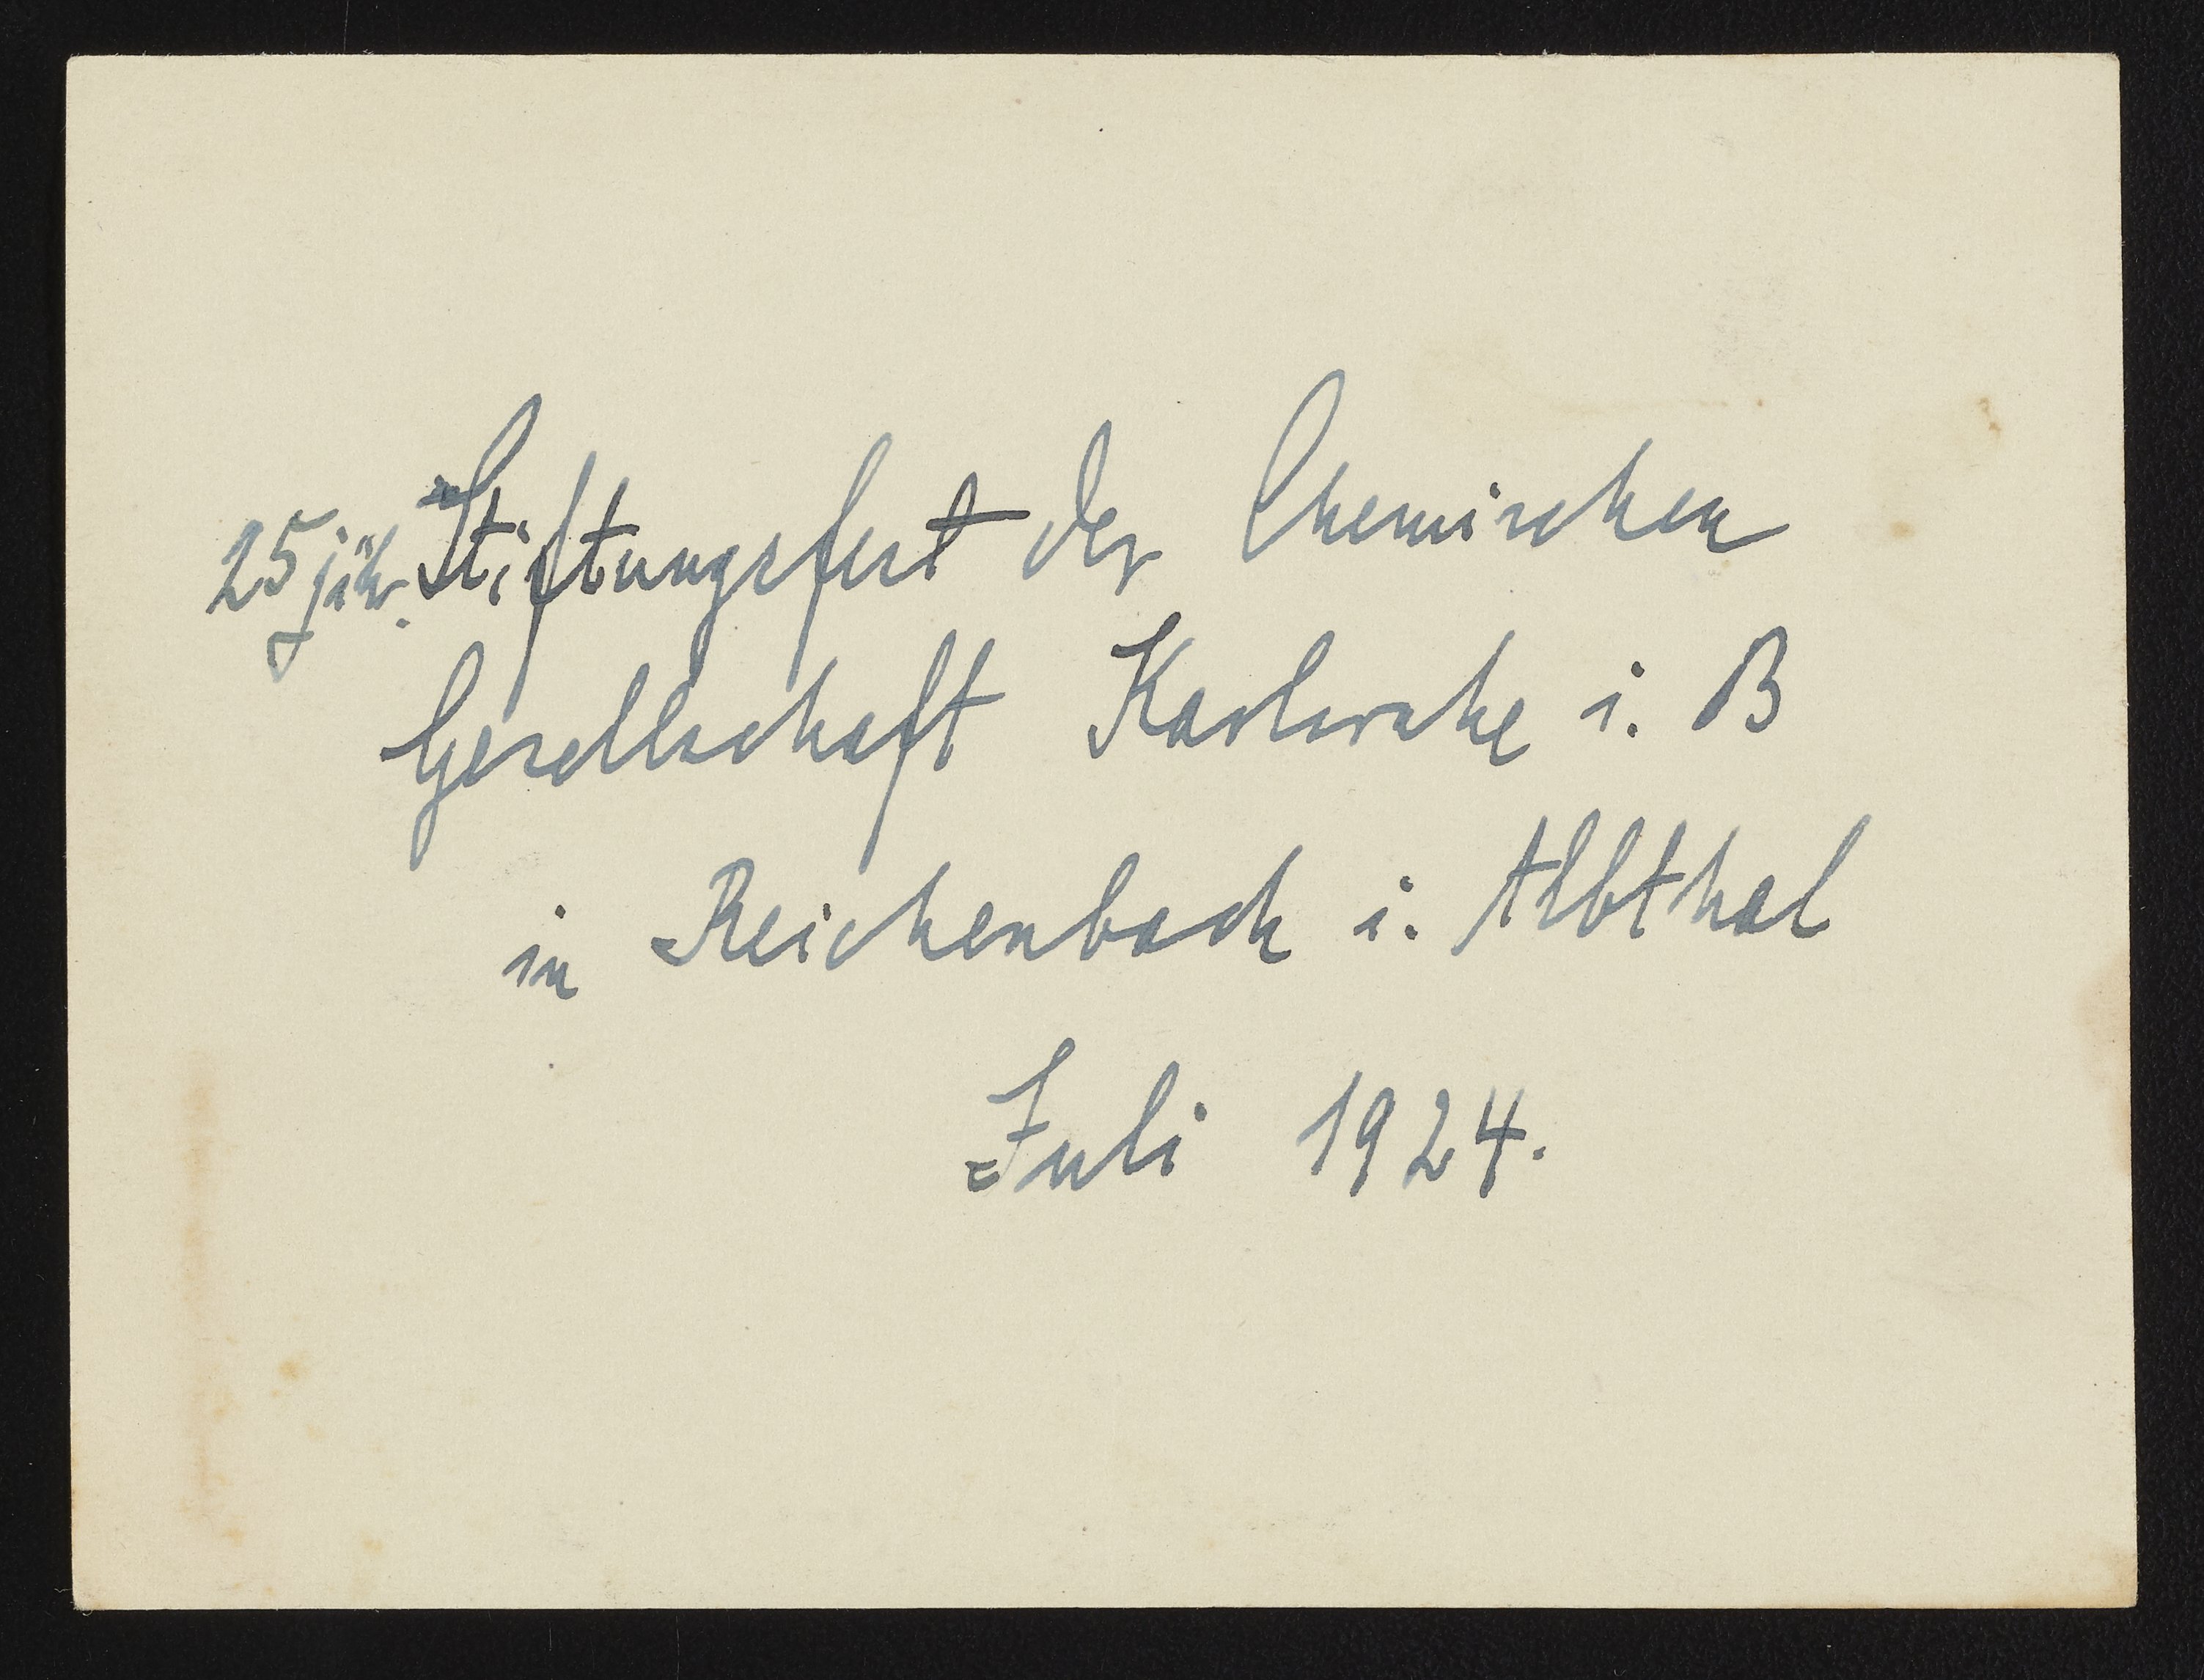 25 jähr. Stiftungsfest der Chemischen
Gesellschaft Karlsruhe i. B
in Reichenbach i. Albthal
Juli 1924.